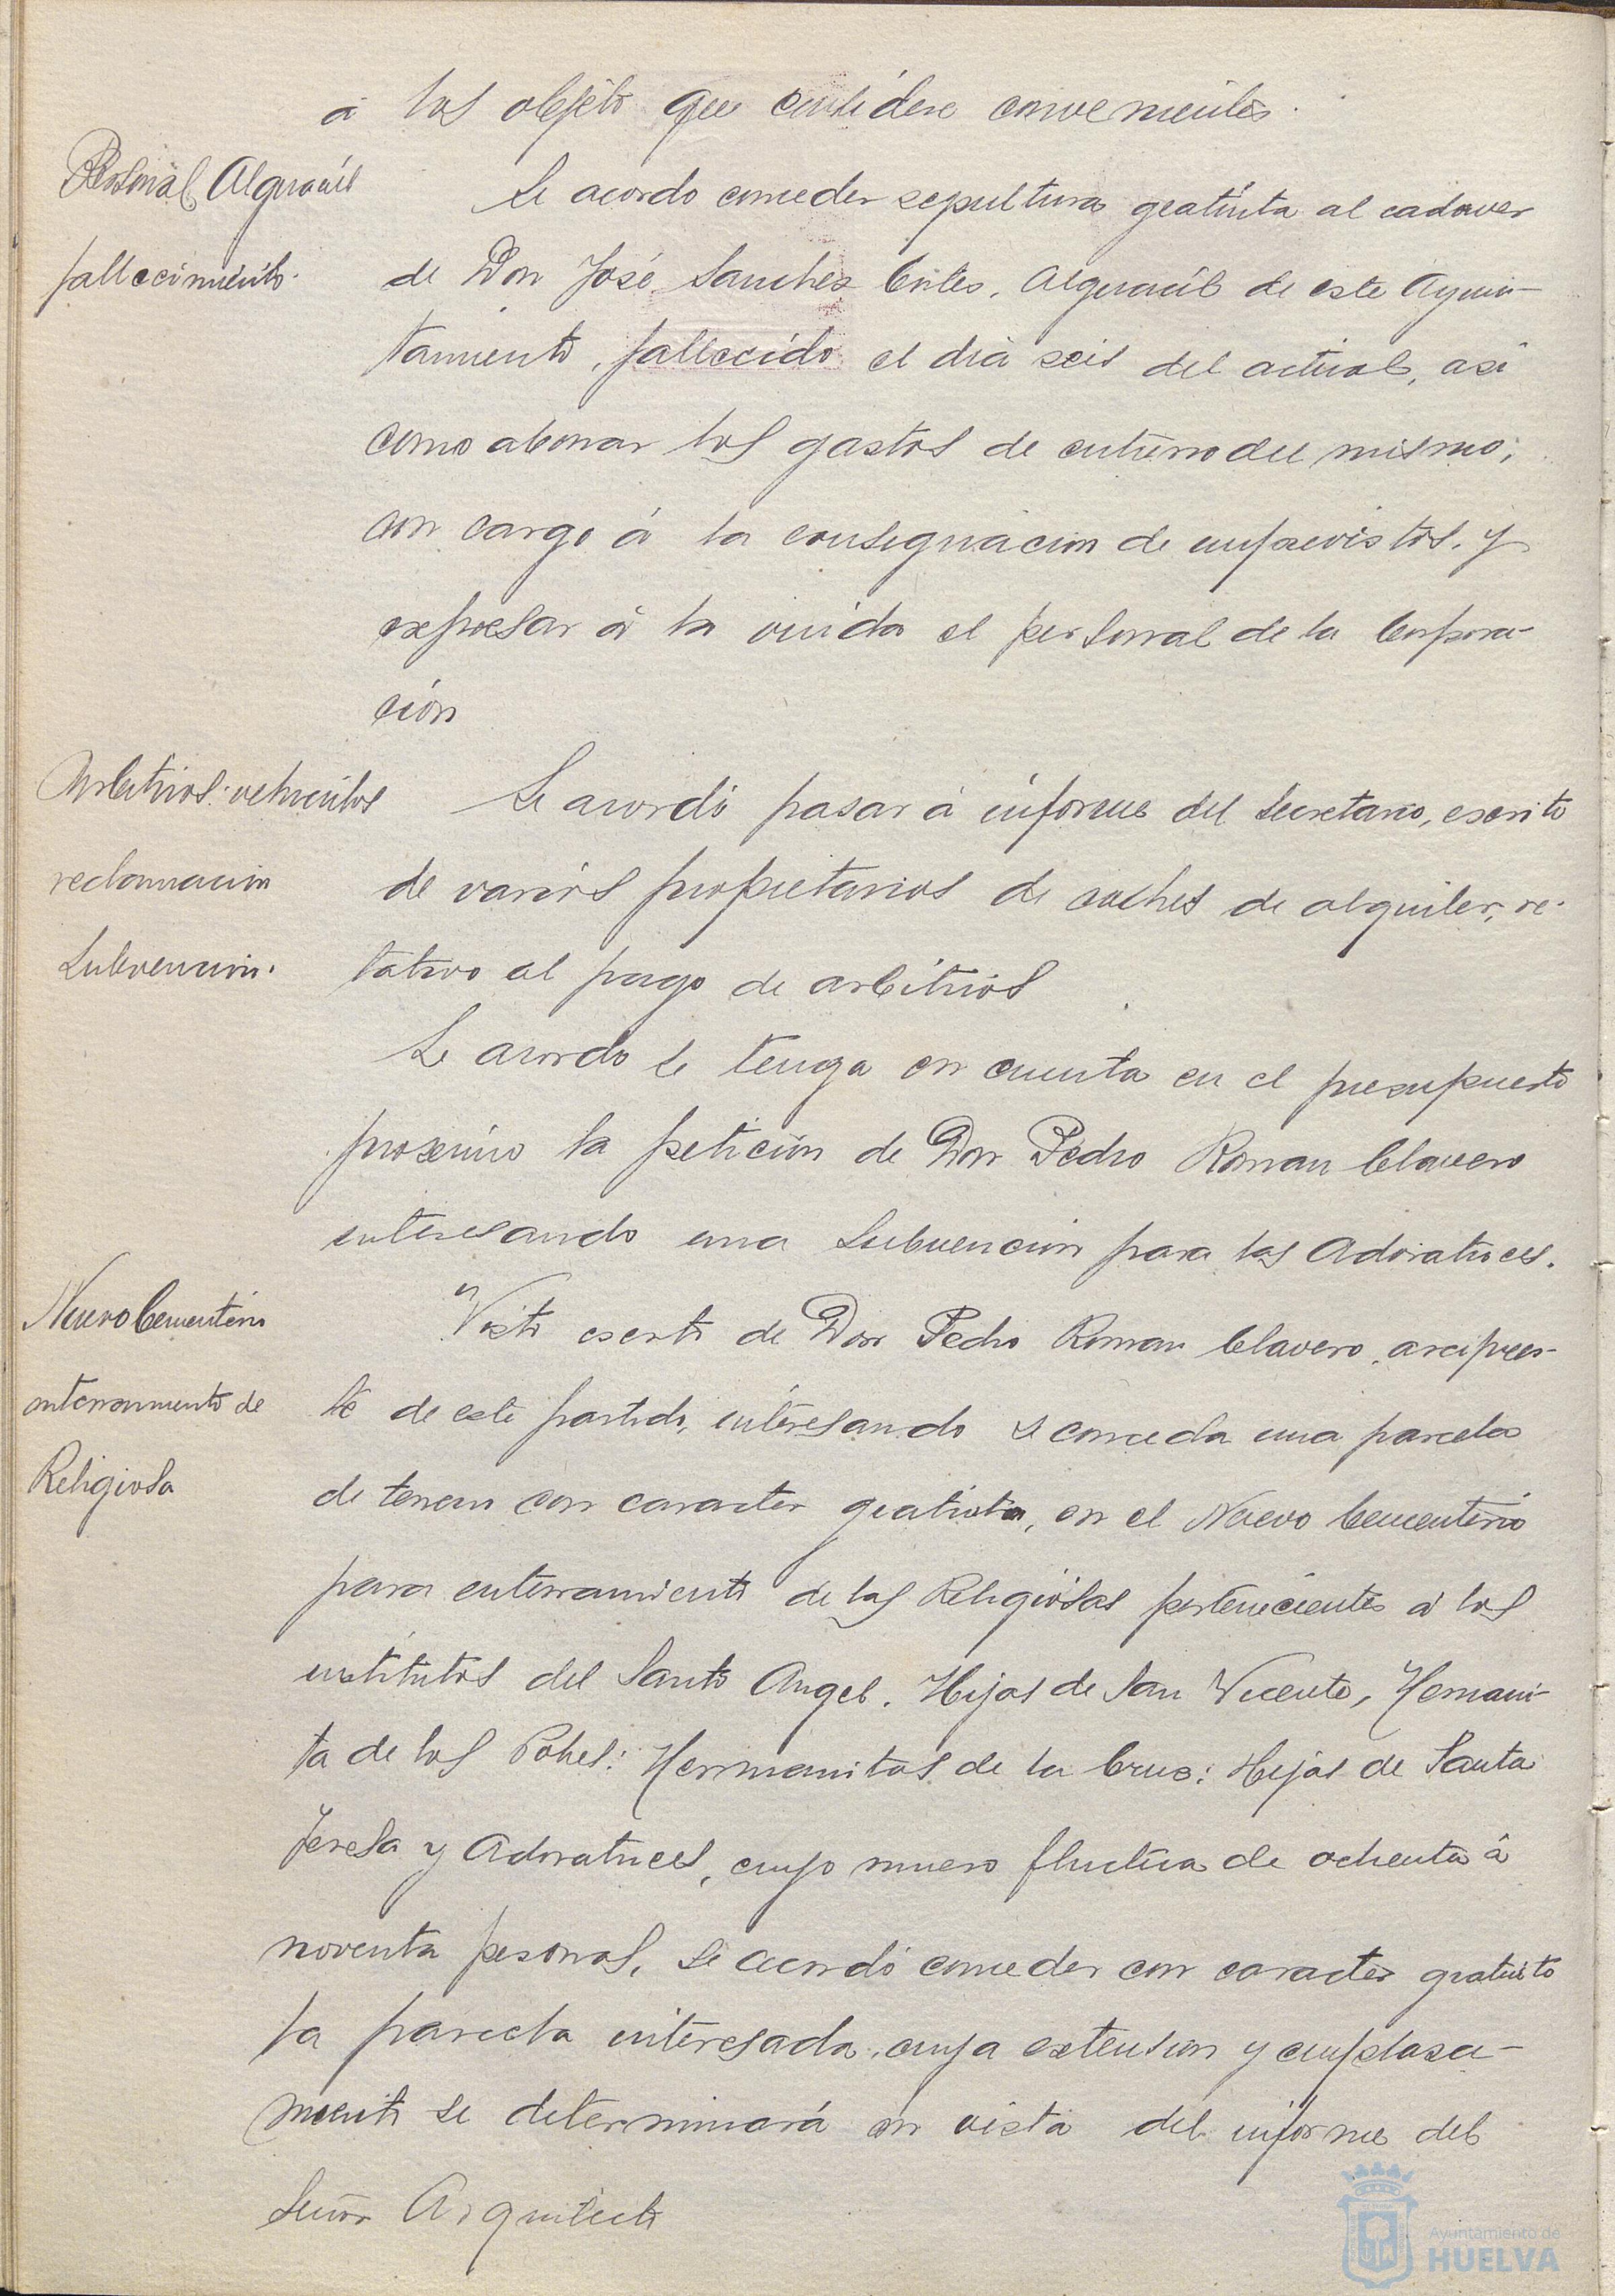 á los objeto que considere convenientes.
Personal Alguacil
fallecimiento.
Se acordo conceder sepultura gratuita al cadaver
de Don José Sanchez Cortes, Alguacil de este Ayun-
tamiento, fallecido el dia seis del actual, asi
como abonar los gastos de entierro del mismo;
con cargo á la consignacion de imprevistos. y
expresar á la viuda el personal de la Corpora-
ción
Arbitrios: vehiculos
reclamacion
Se acordó pasar á informe del Secretario, escrito
de varios propietarios de coches de alquiler, re-
lativo al pago de arbitrios
Subvencion.
Se acordo se tenga en cuenta en el presupuesto
proximo la petición de Don Pedro Roman Clavero
interesando una Subvencion para las Adoratrices.
Nuevo Cementerio
enterramiento de
Religiosa
Visto escrito de Don Pedro Roman Clavero, arcipres-
te de este partido, interesando se conceda una parcela
de terreno con caracter gratuito, en el Nuevo Cementerio
para enterramiento de las Religiosas pertenecientes á los
institutos del Santo Angel. Hijas de San Vicente, Hermani-
ta de los Pobres: Hermanitas de la Cruz: Hijas de Santa
Teresa y Adoratrices, cuyo numero fluctua de ochenta á
noventa personas, se acordó conceder con caracter gratuito
la parcela interesada, cuya extension y emplaza-
miento se determinará en vista del informe del
Señor Arquitecto
Ayuntamiento de
HUELVA